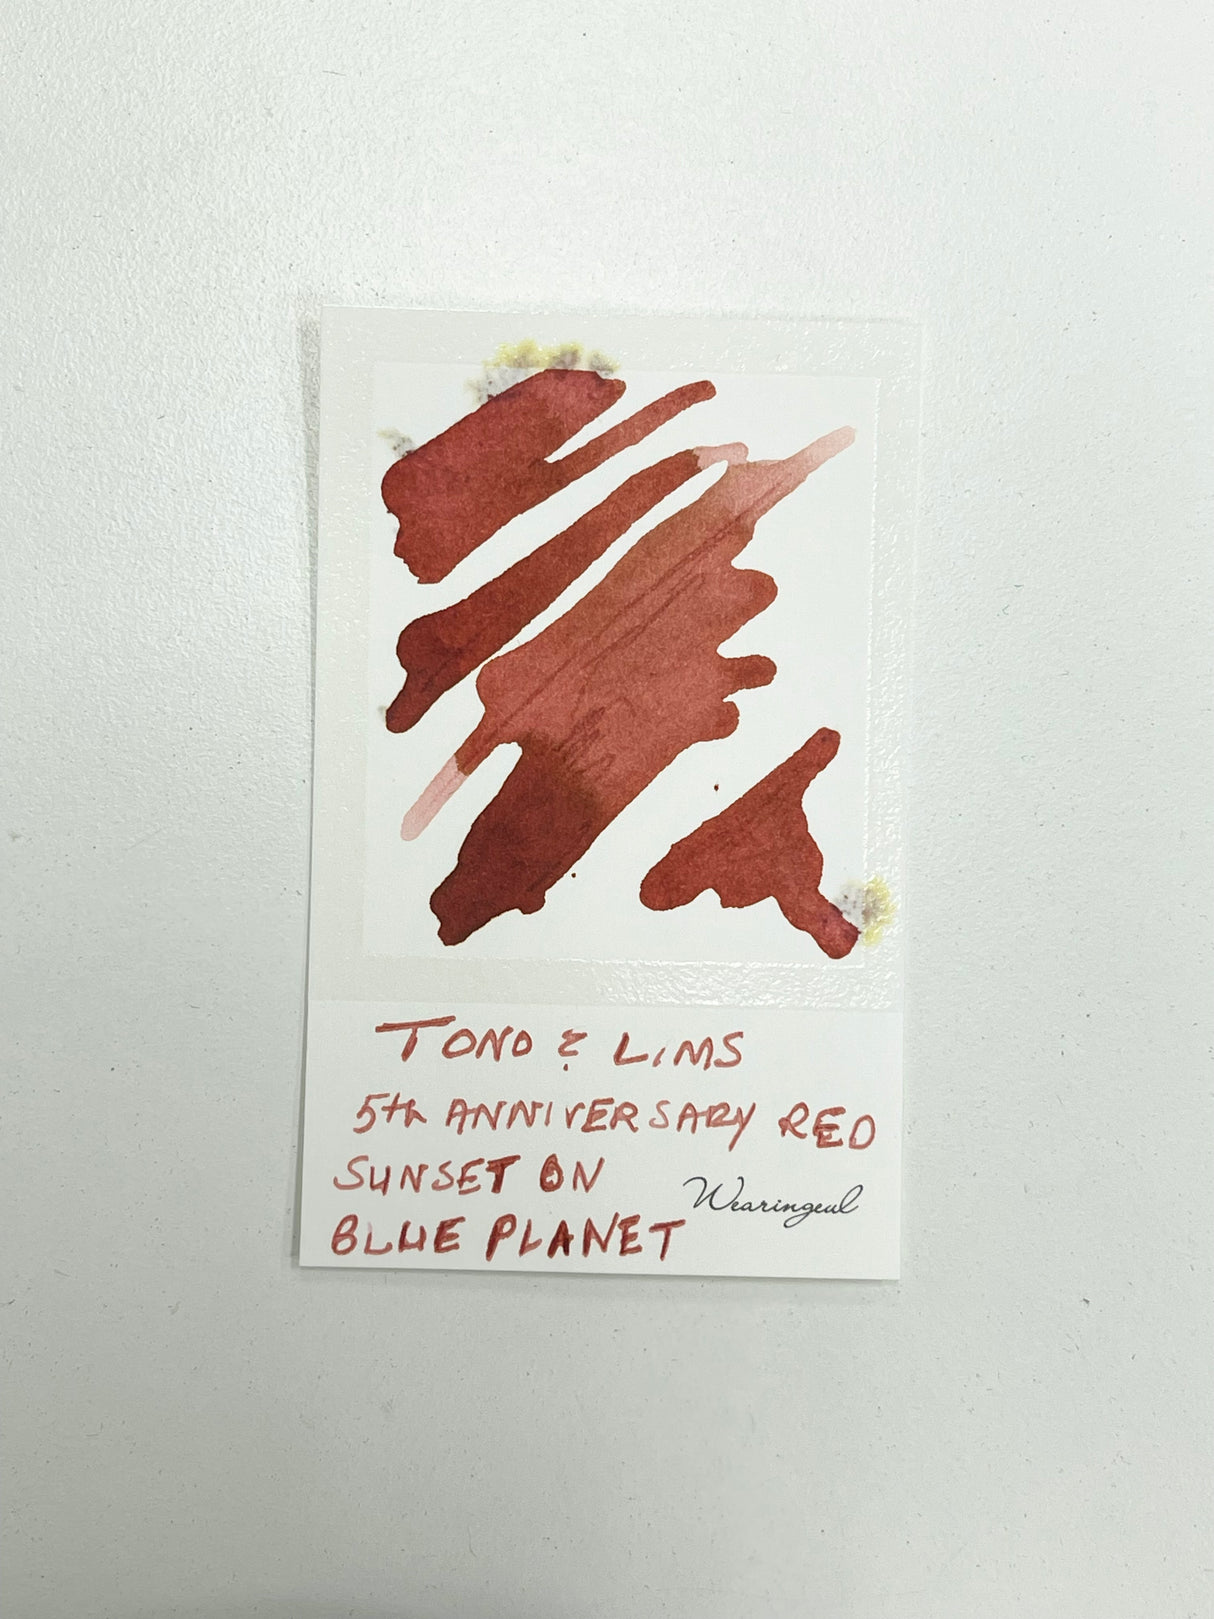 TONO & LIMS
5th ANNIVERSARY RED
SUNSET ON
BLUE PLANET
Wearingeul